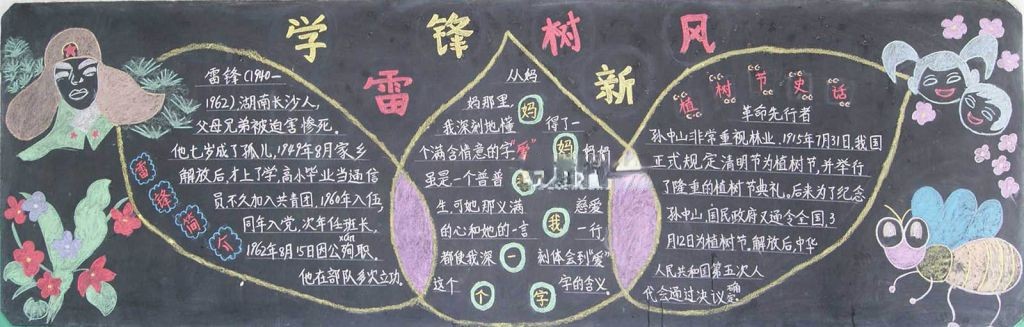 学雷锋树新风
雷锋(1940-
1962).湖南长沙人,
父母兄弟被迫害惨死.
他七岁成了孤儿,1949年8月家乡
解放后,才上了学,高小毕业当通信
员不久加入共青团,1960年入伍,
同年入党,次年任班长,
xùn
1962年8月15日因公殉职,
他在部队多次立功.
雷锋简介
从妈
妈那里,
我深刻地懂得了一
个满含情意的字"爱"
妈妈
虽是一个普普
生,可她那义满慈爱
的心和她的一言一行,
都使我深刻体会到"爱"
这个字的含义.
妈
妈
我
一
个
字
植树节史话
革命先行者
孙中山非常重视林业.1915年7月31日,我国
正式规定清明节为植树节,并举行
了隆重的植树节典礼.后来为了纪念
孙中山,国民政府又通令全国,3
月12日为植树节.解放后,中华
人民共和国第五次人
代会通过决议确定.